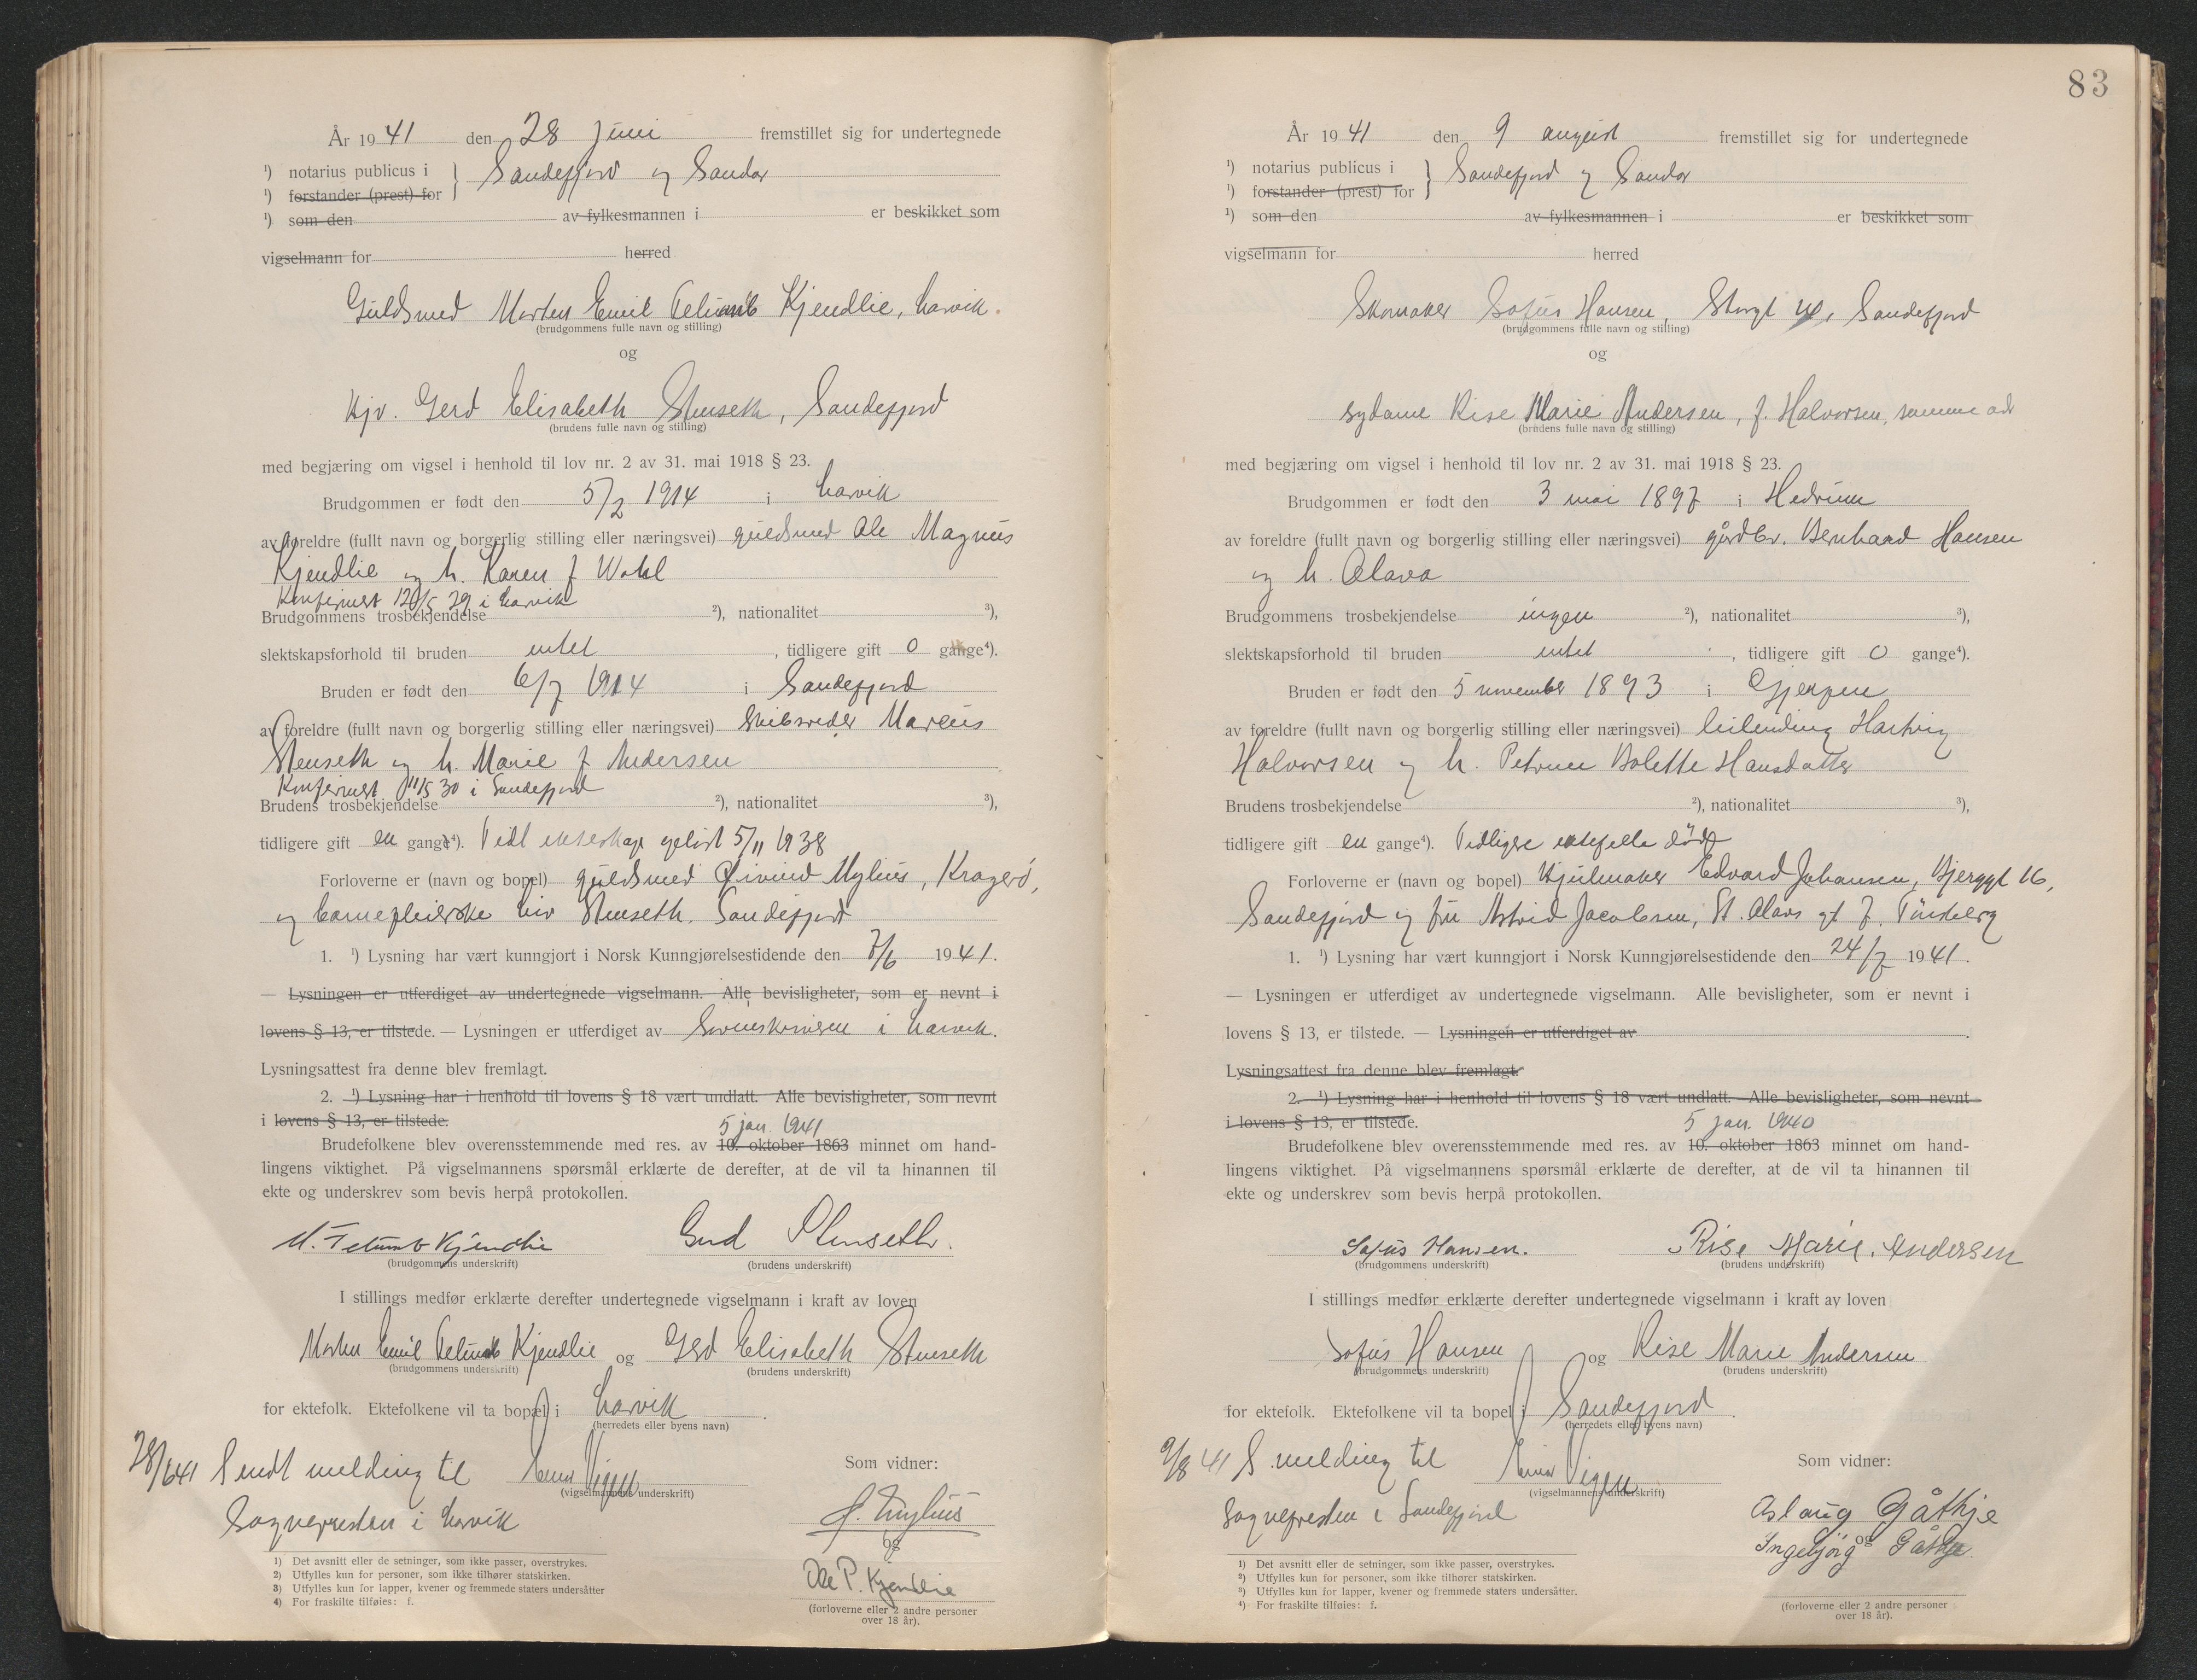 År 1941 den 28 juni fremstillet sig for undertegnede
¹) notarius publicus i } Sandefjord og Sandar
¹) forstander (prest) for
¹) som den av fylkesmannen i er beskikket som
vigselmann for herred
Guldsmed Morten Emil Kjendlie, Larvik.
(brudgommens fulle navn og stilling)
og
Kjv. Gerd Elisabeth Stenseth, Sandefjord
(brudens fulle navn og stilling)
med begjæring om vigsel i henhold til lov nr. 2 av 31. mai 1918 § 23.
Brudgommen er født den 5/2 1914 i Larvik
av foreldre (fullt navn og borgerlig stilling eller næringsvei) guldsmed Ole Magnus
Kjendlie og h. Karen f Wahl
Konfirmert 12/5 29 i Larvik
Brudgommens trosbekjendelse ²), nationalitet ³),
slektskapsforhold til bruden intet, tidligere gift 0 gange⁴).
Bruden er født den 6/7 1914 i Sandefjord
av foreldre (fullt navn og borgerlig stilling eller næringsvei) Skibsreder Marcus
Stenseth og h. Marie f Andersen
Konfirmert 11/5 30 i Sandefjord
Brudens trosbekjendelse ²), nationalitet ³),
tidligere gift en gang⁴). Tidl ekteskap opløst 5/11 1938
Forloverne er (navn og bopel) guldsmed Øivind Mylius, Kragerø,
og barnepleierske Liv Stenseth. Sandefjord
1. ¹) Lysning har vært kunngjort i Norsk Kunngjørelsestidende den 7/6 1941.
— Lysningen er utferdiget av undertegnede vigselmann. Alle bevisligheter, som er nevnt i
lovens § 13, er tilstede. — Lysningen er utferdiget av Sorenskriveren i Larvik.
Lysningsattest fra denne blev fremlagt.
2. ¹) Lysning har i henhold til lovens § 18 vært undlatt. Alle bevisligheter, som nevnt
i lovens § 13, er tilstede.
5 jan. 1941
Brudefolkene blev overensstemmende med res. av 10. oktober 1863 minnet om hand-
lingens viktighet. På vigselmannens spørsmål erklærte de derefter, at de vil ta hinannen til
ekte og underskrev som bevis herpå protokollen.
M. Kjendlie Gerd Stenseth.
(brudgommens underskrift) (brudens underskrift)
I stillings medfør erklærte derefter undertegnede vigselmann i kraft av loven
Morten Emil Kjendlie og Gerd Elisabeth Stenseth
(brudgommens underskrift) (brudens underskrift)
for ektefolk. Ektefolkene vil ta bopæl i Larvik
(herredets eller byens navn)
28/6 41 Sendt melding til Einar Vigen Som vidner:
(vigselmannens underskrift)
Sognepresten i Larvik
Ø. Mylius
og
Ole P. Kjendlie
(forloverne eller 2 andre personer
over 18 år).
1) Det avsnitt eller de setninger, som ikke passer, overstrykes.
2) Utfylles kun for personer, som ikke tilhører statskirken.
3) Utfylles kun for lapper, kvener og fremmede staters undersåtter
4) For fraskilte tilføies: f.
83
År 1941 den 9 august fremstillet sig for undertegnede
¹) notarius publicus i } Sandefjord og Sandar
¹) forstander (prest) for
²) som den av fylkesmannen i er beskikket som
vigselmann for herred
Skomaker Sofus Hansen, Storgt Sandefjord
(brudgommens fulle navn og stilling)
og
sydame Rise Marie Andersen, f. Halvorsen, samme adr
(brudens fulle navn og stilling)
med begjæring om vigsel i henhold til lov nr. 2 av 31. mai 1918 § 23.
Brudgommen er født den 3 mai 1897 i Hedrum
av foreldre (fullt navn og borgerlig stilling eller næringsvei) gårdbr. Bernhard Hansen
og h. Olava
Brudgommens trosbekjendelse ingen ²), nationalitet ³),
slektskapsforhold til bruden intet, tidligere gift 0 gange⁴).
Bruden er født den 5 november 1893 i Gjerpen
av foreldre (fullt navn og borgerlig stilling eller næringsvei) leilending Hartvig
Halvorsen og h. Petrine Bolette Hansdatter
Brudens trosbekjendelse ²), nationalitet ³),
tidligere gift en gange⁴). Tidligere ektefelle død
Forloverne er (navn og bopel) Hjulmaker Edvard Johansen, Bjerggt 16,
Sandefjord og fru Astrid Jacobsen, St. Olavs gt 7. Tønsberg
1. ¹) Lysning har vært kunngjort i Norsk Kunngjørelsestidende den 24/7 1941.
— Lysningen er utferdiget av undertegnede vigselmann. Alle bevisligheter, som er nevnt i
lovens § 13, er tilstede. — Lysningen er utferdiget av
Lysningsattest fra denne blev fremlagt.
2. ¹) Lysning har i henhold til lovens § 18 vært undlatt. Alle bevisligheter, som nevnt
i lovens § 13, er tilstede.
5 jan. 1940
Brudefolkene blev overensstemmende med res. av 10. oktober 1863 minnet om hand-
lingens viktighet. På vigselmannens spørsmål erklærte de derefter, at de vil ta hinannen til
ekte og underskrev som bevis herpå protokollen.
Sofus Hansen. Rise Marie. Andersen
(brudgommens underskrift) (brudens underskrift)
I stillings medfør erklærte derefter undertegnede vigselmann i kraft av loven
Sofus Hansen og Rise Marie Andersen
(brudgommens underskrift) (brudens underskrift)
for ektefolk. Ektefolkene vil ta bopel i Sandefjord
(herredets eller byens navn)
9/8 41 S. melding til Einar Vigen Som vidner:
(vigselmannens underskrift)
Sognepresten i Sandefjord
Aslaug Gåthje
og
Ingebjørg Gåthje
1) Det avsnitt eller de setninger, som ikke passer, overstrykes.
2) Utfylles kun for personer, som ikke tilhører statskirken.
3) Utfylles kun for lapper, kvener og fremmede staters undersåtter.
4) For fraskilte tilføies: f.
(forloverne eller 2 andre personer
over 18 år).